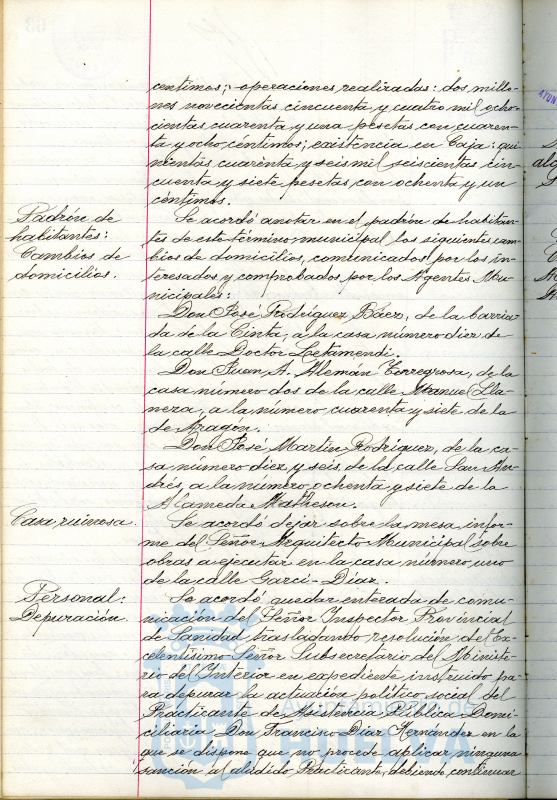 centimos; operaciones realizadas: dos millo-
nes novecientas cincuenta y cuatro mil ocho-
cientas cuarenta y una pesetas con cuaren-
ta y ocho centimos; existencia en Caja: qui-
nientas cuarenta y seis mil seiscientas cin-
cuenta y siete pesetas con ochenta y un
céntimos.
Padrón de
habitantes:
Cambios de
domicilios.
Se acordó anotar en el padrón de habitan-
tes de este término municipal los siguientes cam-
bios de domicilios, comunicados por los in-
teresados y comprobados por los Agentes Mu-
nicipales:
Don José Rodríguez Báez, de la barria-
da de la Cinta, a la casa número diez de
la calle Doctor Letamendi.
Don Juan A. Alemán Torregrosa, de la
casa número dos de la calle Manuel Lla-
neza, a la número cuarenta y siete de la
de Aragón.
Don José Martín Rodríguez, de la ca-
sa número diez y seis, de la calle San An-
drés, a la número ochenta y siete de la
Alameda Matheson.
Casa ruinosa.
Se acordó dejar sobre la mesa infor-
me del Señor Arquitecto Municipal sobre
obras a ejecutar en la casa número uno
de la calle Garci-Díaz.
Personal:
Depuración.
Se acordó quedar enterada de comu-
nicación del Señor Inspector Provincial
de Sanidad trasladando resolución del Ex-
celentísimo Señor Subsecretario del Ministe-
rio del Interior en expediente instruido pa-
ra depurar la actuación político social del
Practicante de Asistencia Pública Domi-
ciliaria Don Francisco Díaz Hernández en la
que se dispone que no procede aplicar ninguna
sanción al aludido Practicante, debiendo continuar
Ayuntamiento de